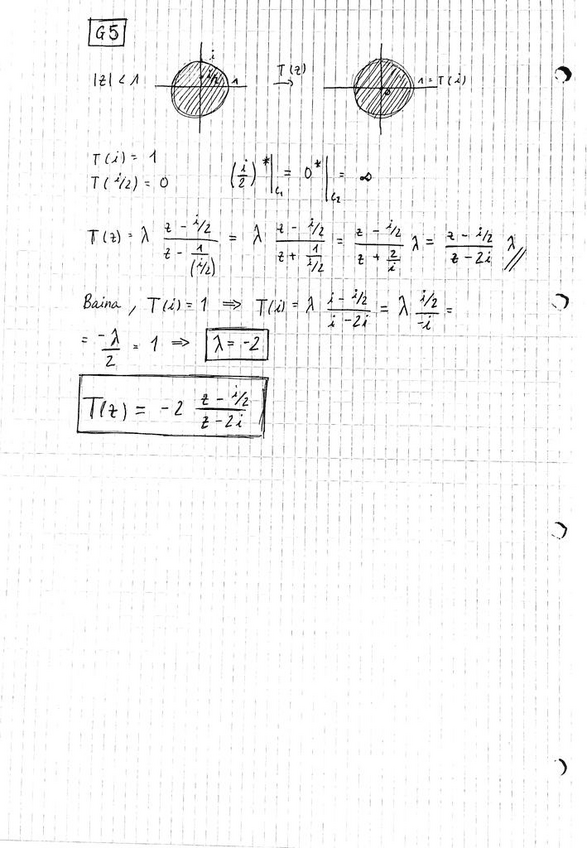 G5
|z| < 1
i
i/2
1
T(z)
→
0
1 = T(i)
T(i) = 1
T(i/2) = 0
(i/2)*|_{C₁} = 0*|_{C₂} = ∞
T(z) = λ (z - i/2)/(z - 1/(i/2)) = λ (z - i/2)/(z + 1/(i/2)) = (z - i/2)/(z + 2/i) λ = (z - i/2)/(z - 2i) λ //
Baina, T(i) = 1 ⇒ T(i) = λ (i - i/2)/(i - 2i) = λ (i/2)/(-i) =
= -λ/2 = 1 ⇒ λ = -2
T(z) = -2 (z - i/2)/(z - 2i)